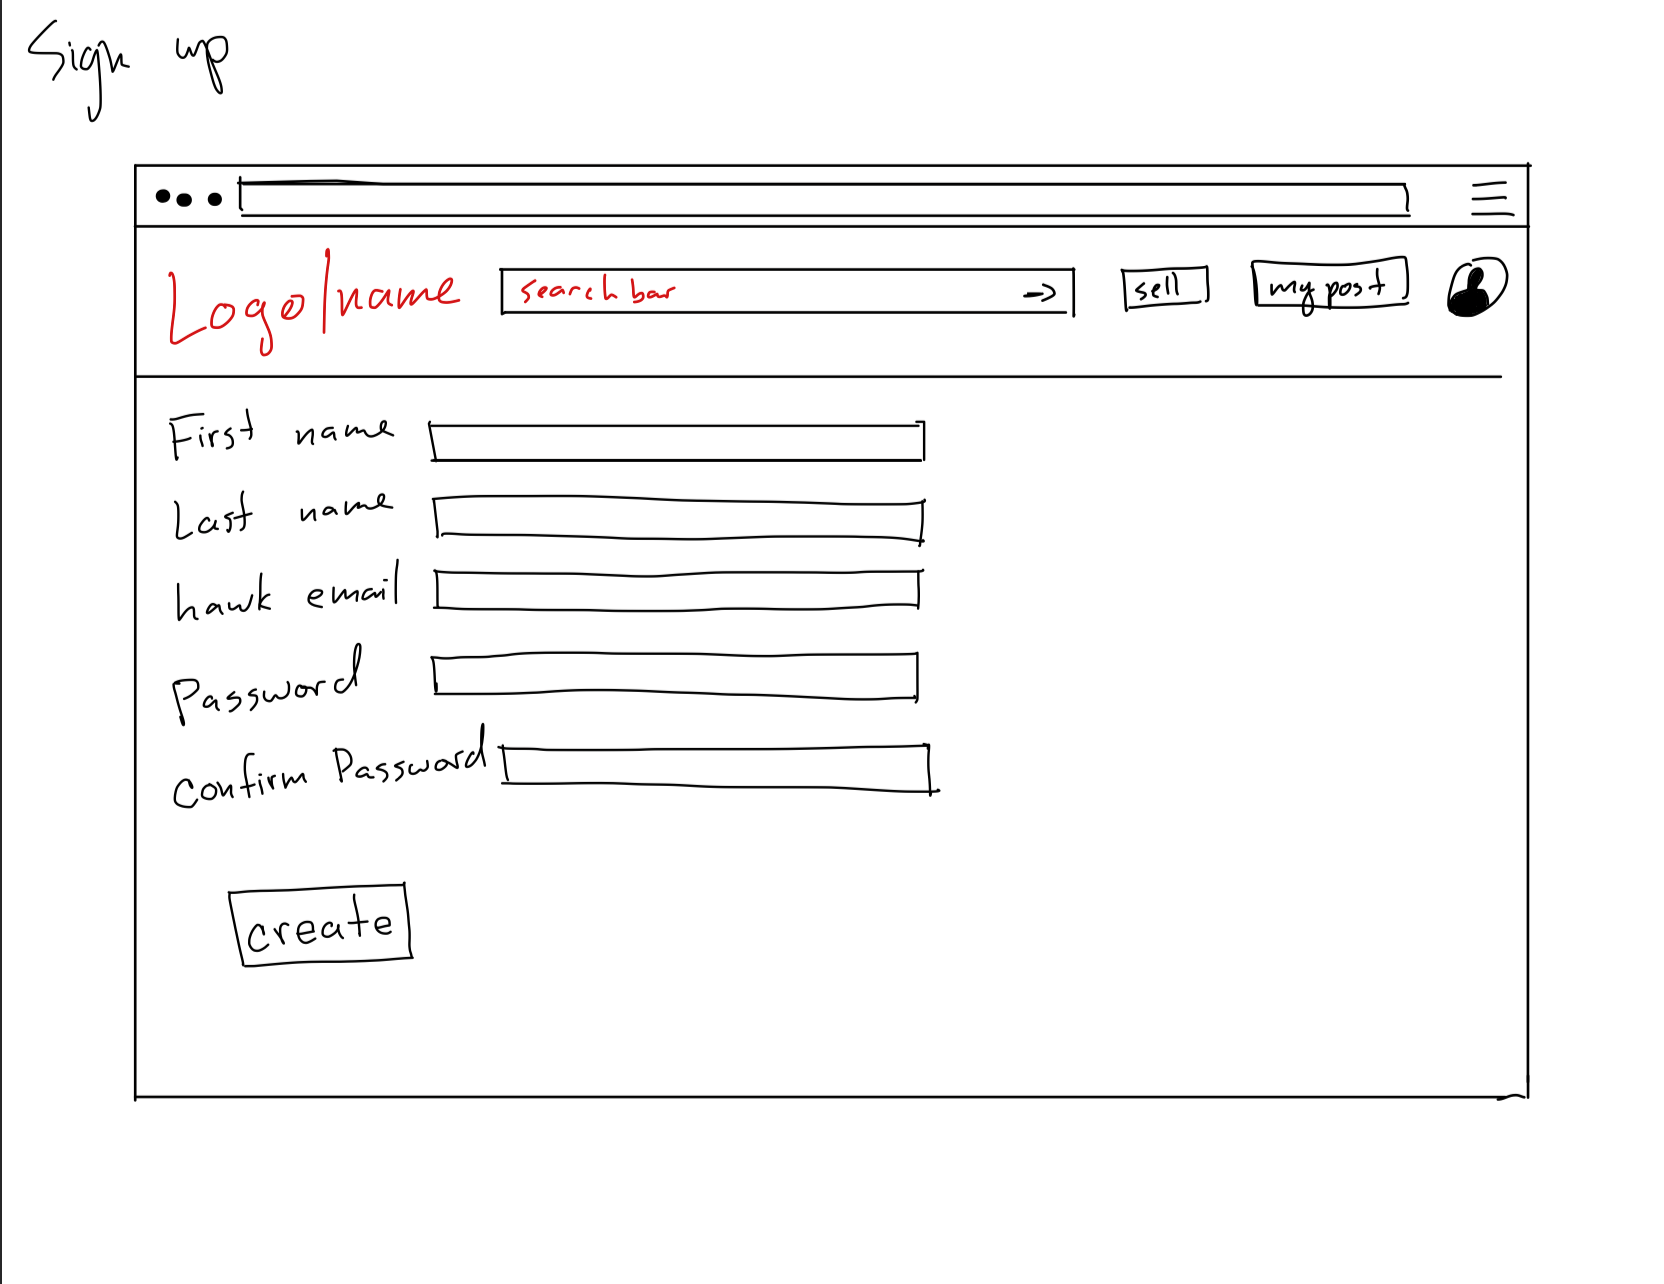 Sign up
Logo/name search bar → sell my post
First name
Last name
hawk email
Password
Confirm Password
create